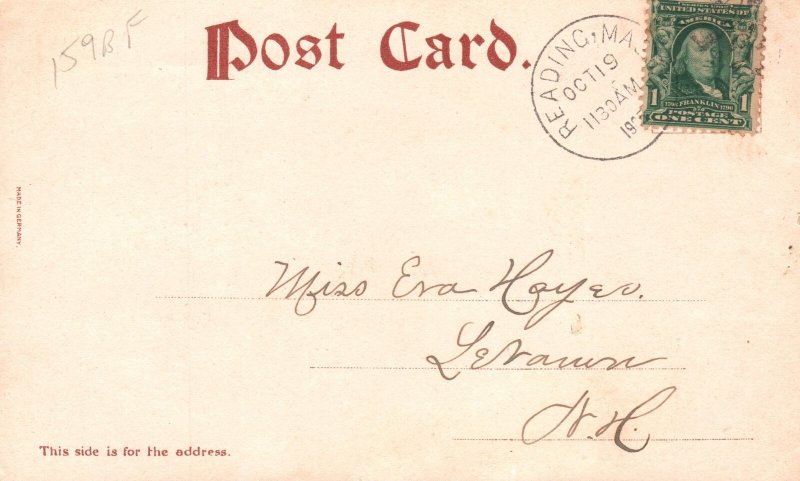 159B F
Post Card.
READING, MAS
OCT 19
1130AM
190
SERIES 1902
UNITED STATES OF
AMERICA
1 FRANKLIN 1790 1
POSTAGE
ONE CENT
MADE IN GERMANY.
Miss Eva Hayes.
Lebanon
N.H.
This side is for the address.